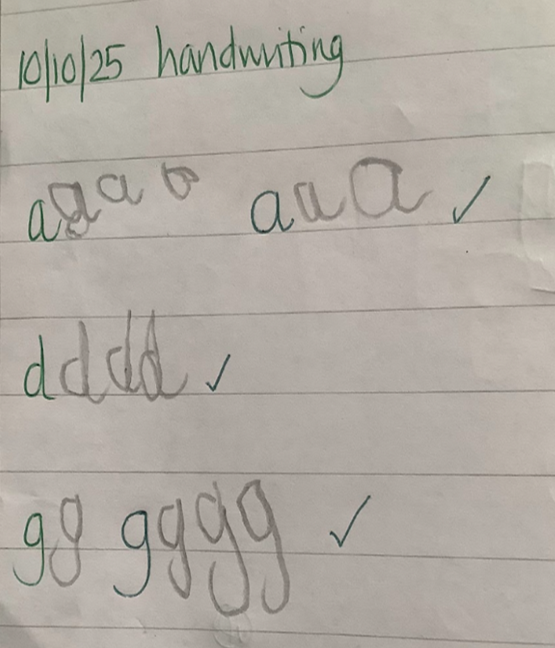 10/10/25 handwriting
a a a a a a a ✓
d d d d d ✓
g g g g g g ✓